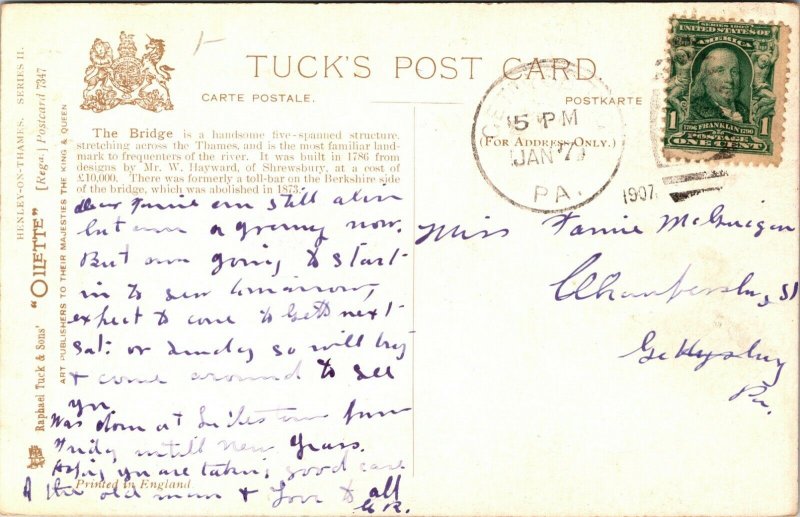 TUCK'S POST CARD.
CARTE POSTALE.
POSTKARTE
(FOR ADDRESS ONLY.)
HENLEY-ON-THAMES. SERIES II.
Raphael Tuck & Sons' "OILETTE" [Regd.] Postcard 7347
ART PUBLISHERS TO THEIR MAJESTIES THE KING & QUEEN
The Bridge is a handsome five-spanned structure,
stretching across the Thames, and is the most familiar land-
mark to frequenters of the river. It was built in 1786 from
designs by Mr. W. Hayward, of Shrewsbury, at a cost of
£10,000. There was formerly a toll-bar on the Berkshire side
of the bridge, which was abolished in 1873.
dear Fannie am still alive
but am a granny now.
But am going to start
in to sew tomorrow,
expect to come to Getts next
Sat: or Sunday so will try
& come around to see
you
Was down at Littlestown from
Friday untill new years.
Hoping you are taking good care
of the old man & Love to all
G. R.
Printed in England.
5 PM
JAN 7
PA.
1907
SERIES 1902
UNITED STATES OF
AMERICA
1706 FRANKLIN 1790
POSTAGE
1 ONE CENT 1
Miss Fannie McGuigan
Chambersburg St
Gettysburg
Pa.